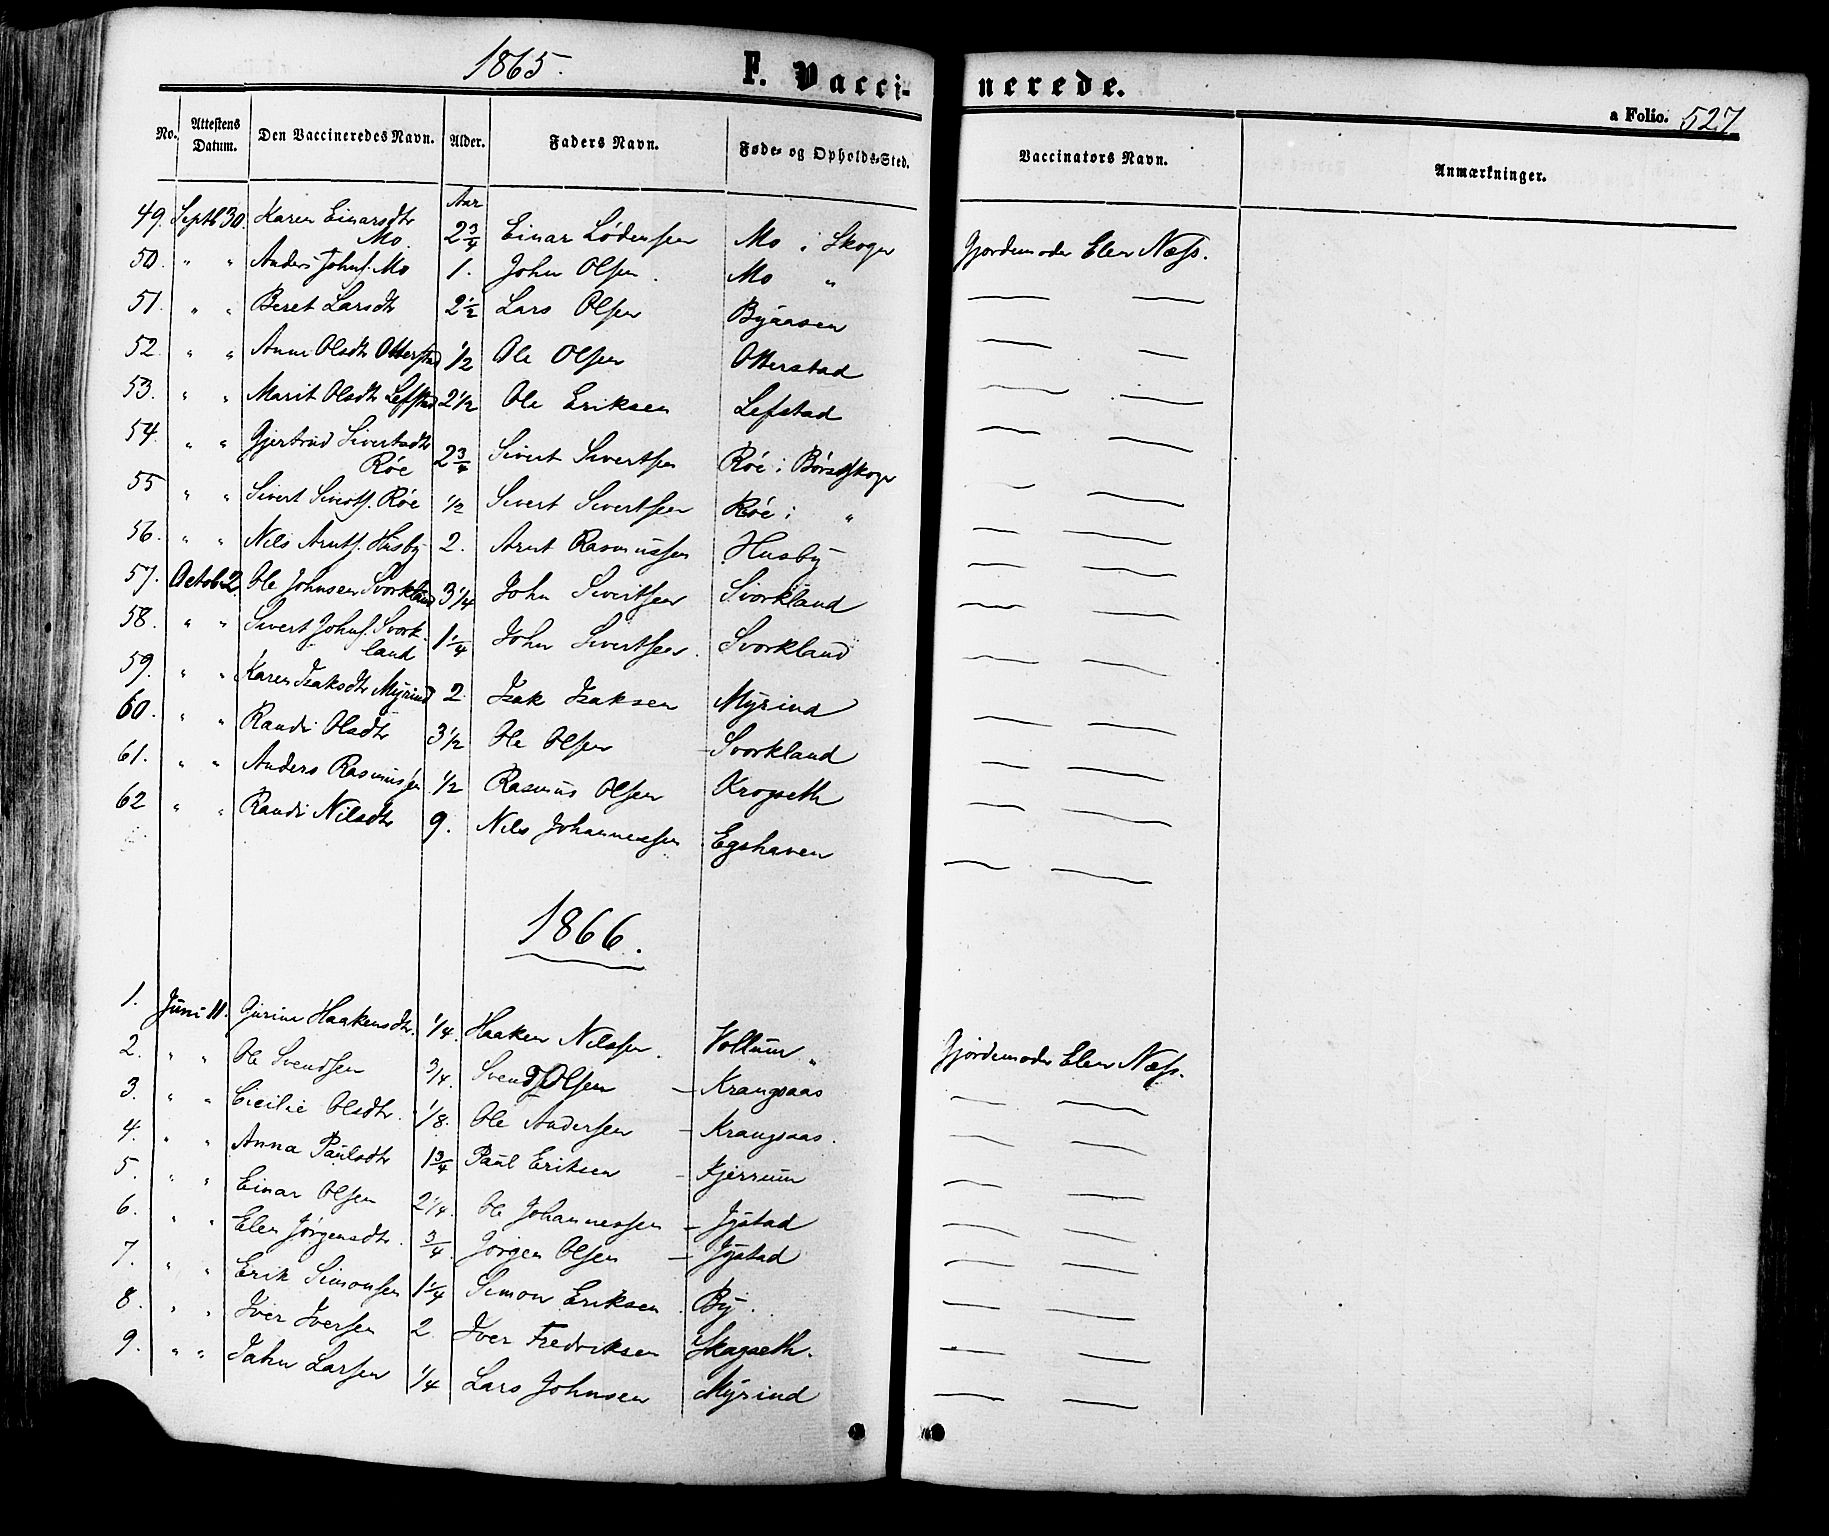 1865. F. Vaccinerede. a Folio. 527
No. Attestens Datum. Den Vaccineredes Navn. Alder. Faders Navn. Føde- og Opholds-Sted. Vaccinators Navn. Anmærkninger.
Aar
49. Septb 30. Karen Einarsdtr Mo. 2 3/4 Einar Lødensen Mo i Skogn Gjordemoder Elen Næss.
50. " " Anders Johns. Mo 1. John Olsen. Mo " — —
51. " " Beret Larsdtr 2 1/2 Lars Olsen Byaasen — —
52. " " Anne Olsdtr Otterstad 1/2 Ole Olsen Otterstad — —
53. " " Marit Olsdtr Lefstad 2 1/2 Ole Eriksen Lefstad — —
54. " " Gjertrud Sivertsdtr Røe 2 3/4 Sivert Sivertsen Røe i Børseskogn — —
55 " " Sivert Siverts. Røe 1/2 Sivert Sivertsen Røe i " — —
56. " " Nils Arnts. Husby 2. Arnt Rasmussen Husby — —
57. Octob 2. Ole Johnsen Svorkland 3 1/4 John Sivertsen Svorkland — —
58. " " Sivert Johns. Svorkland 1 1/4 John Sivertsen. Svorkland — —
59. " " Karen Isaksdtr Myrind 2. Isak Isaksen Myrind — —
60. " " Randi Olsdtr 3 1/2 Ole Olsen — Svorkland — —
61. " " Anders Rasmussen 1/2 Rasmus Olsen Krogseth — —
62 " " Randi Nilsdtr 9. Nils Johannessen Egshaven — —
1866.
1. Juni 11. Gurine Haakensdtr. 1/4. Haaken Nilssen. Vollum " Gjordemoder Elen Næss.
2. " " Ole Svendsen 3/4. Svend Olsen — Krangsaas — —
3. " " Cicilie Olsdtr. 1/8. Ole Andersen — Krangsaas. — —
4. " " Anna Paulsdtr 1 3/4 Paul Eriksen — Kjerrum — —
5. " " Einar Olsen 2 1/4. Ole Johannessen — Jystad — —
6. " " Elen Jørgensdtr. 3/4. Jørgen Olsen — Jystad — —
7. " " Erik Simonsen 1 1/4 Simon Eriksen. By. — —
8. " " Iver Iversen 2. Iver Fredriksen Skagseth. — —
9. " " Jahn Larsen 1/4 Lars Johnsen Myrind — —